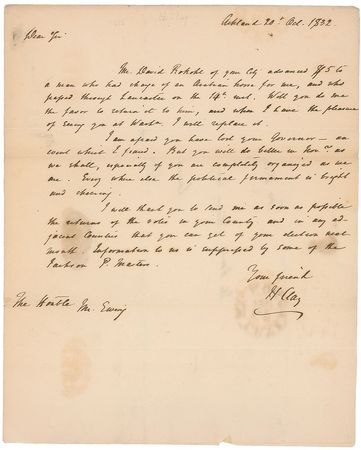 Ashland 20th Oct. 1832
Dear Sir
Mr. David of your City advanced $5 to
a man who had charge of an Arabian horse for me, and who
passed through Lancaster on the 14th inst. Will you do me
the favor to return it to him, and when I have the pleasure
of seeing you at Washn. I will replace it.
I am afraid you have lost your Governor - an
event which I feared. But you will do better in Novr. as
we shall, especially if you are completely organized as are
we. Every where else the political firmament is bright
and cheering.
I will thank you to send me as soon as possible
the returns of the votes in your County and in any ad-
jacent Counties that you can get of your election next
month. Information to us is suppressed by some of the
Jackson P. Masters.
Your friend
H Clay
The Honble Mr. Ewing